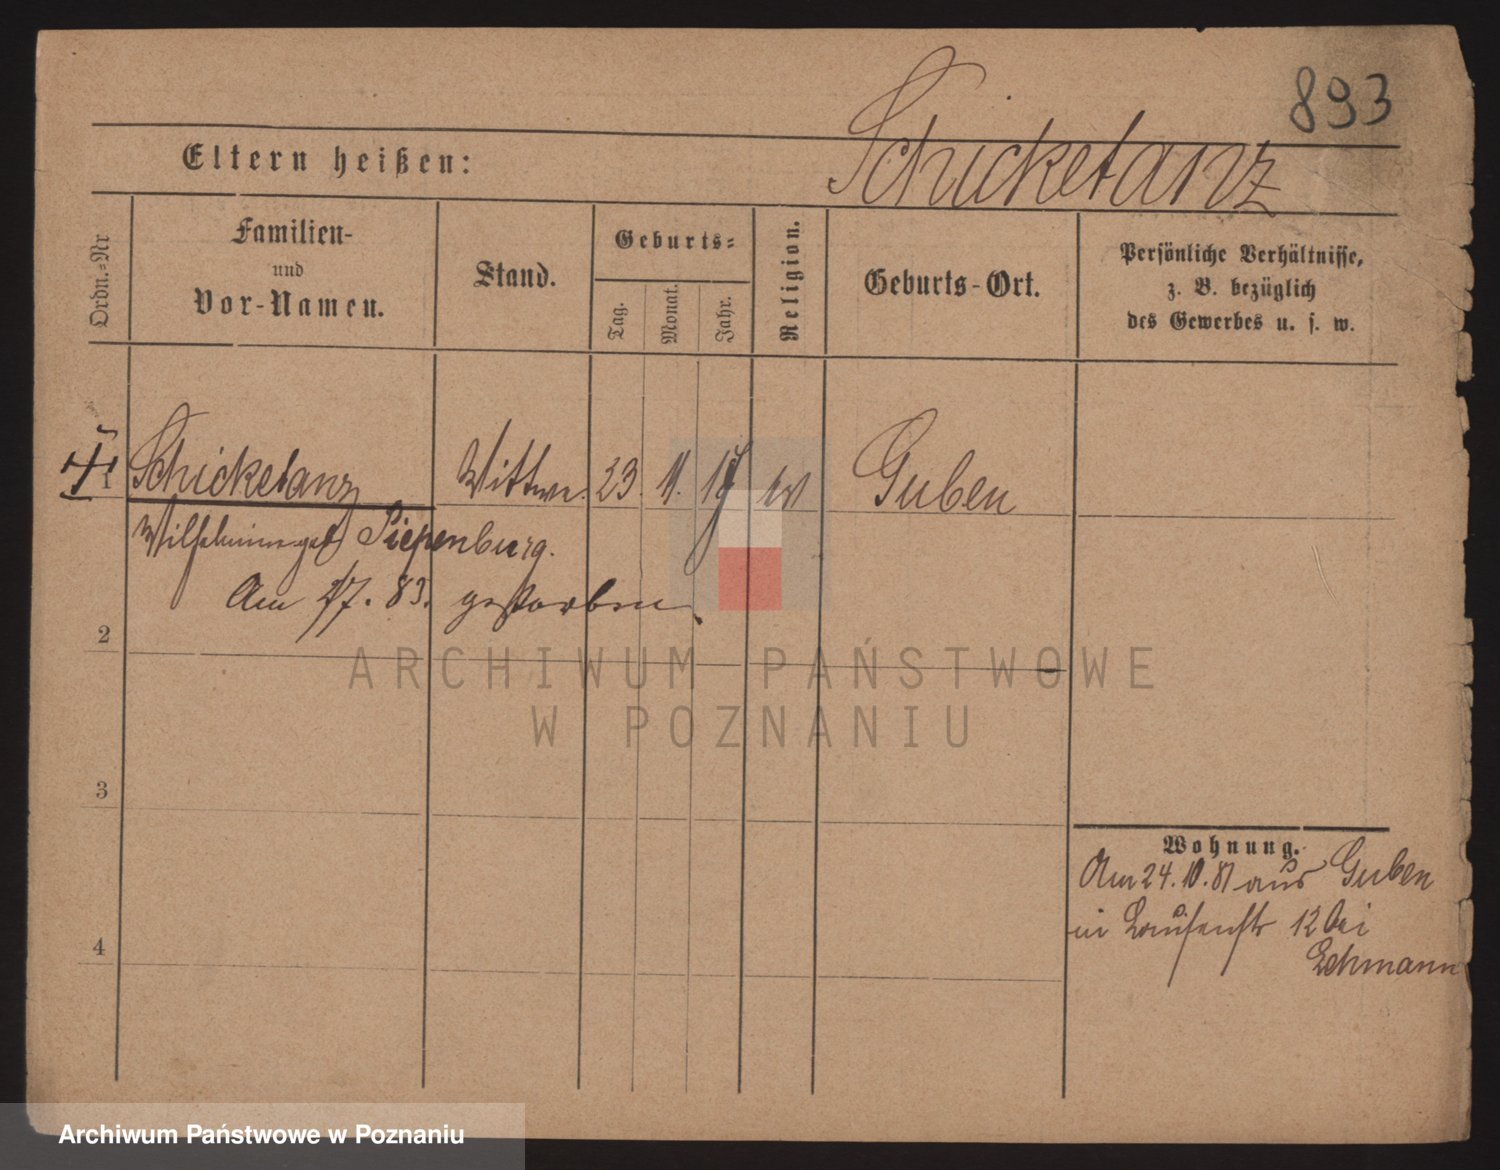 893
Schicketanz
Eltern heißen:
Ordn.-Nr
Familien-
und
Vor-Namen.
Stand.
Geburts-
Tag.
Monat.
Jahr.
Religion.
Geburts-Ort.
Persönliche Verhältnisse,
z. B. bezüglich
des Gewerbes u. s. w.
1 Schicketanz Wittwe. 23. 11. 17 ev Guben
Wilhelmine geb Siepenburg.
Am 7. 83. gestorben
2
ARCHIWUM PAŃSTWOWE
W POZNANIU
3
Wohnung.
Am 24. 10. 81 aus Guben
in 12 bei
Lehmann
4
Archiwum Państwowe w Poznaniu